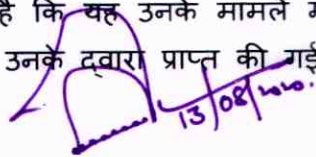 है कि यह उनके मामले
उनके द्वारा प्राप्त की गई
13/08/2020.